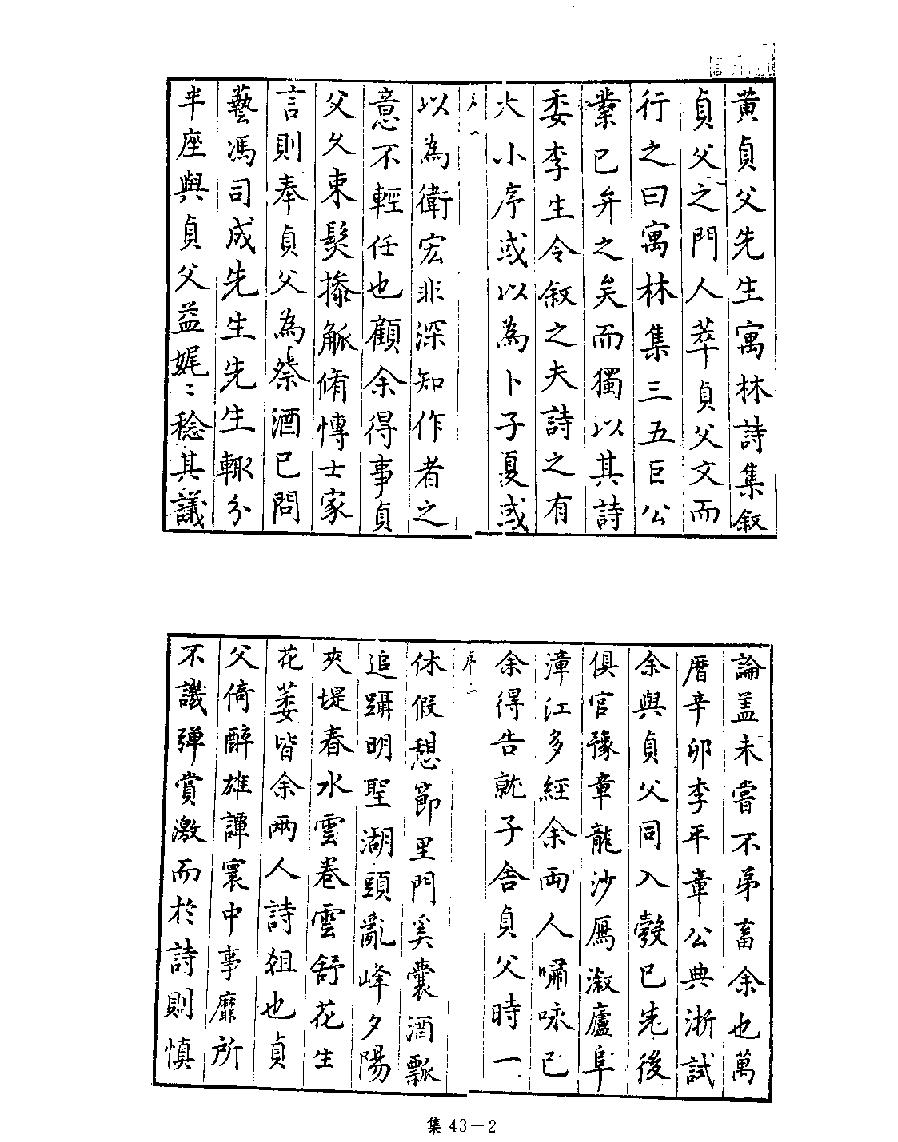 黄貞父先生寓林詩集叙
貞父之門人萃貞父文而
行之曰寓林集三五巨公
業已弁之矣而獨以其詩
委李生令叙之夫詩之有
大小序或以為卜子夏或
以為衛宏非深知作者之
意不輕任也顧余得事貞
父父束髮操觚脩博士家
言則奉貞父為祭酒已問
藝馮司成先生先生輙分
半座與貞父益娓〻稔其議
論盖未嘗不弟畜余也萬
曆辛卯李平章公典浙試
余與貞父同入彀已先後
俱官豫章龍沙鴈溆廬阜
漳江多經余兩人嘯咏已
余得告就子舍貞父時一
序二
休假憩節里門奚囊酒瓢
追躡明聖湖頭亂峰夕陽
夾堤春水雲卷雲舒花生
花萎皆余兩人詩組也貞
父倚醉雄譚寰中事靡所
不譏彈賞激而於詩則慎
集43－2